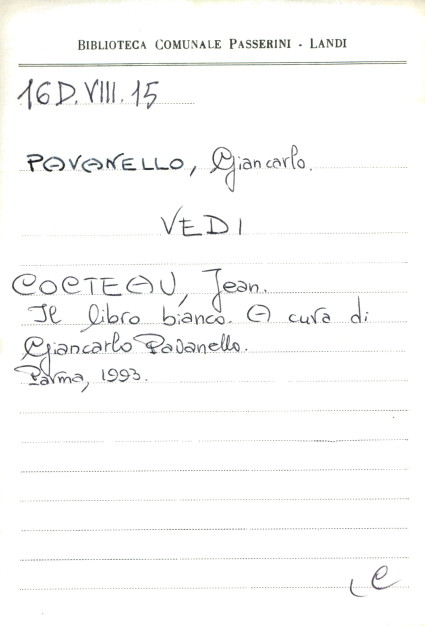 BIBLIOTECA COMUNALE PASSERINI - LANDI
16D.VIII.15
PAVANELLO, Giancarlo.
VEDI
COCTEAU, Jean.
Il libro bianco. A cura di
Giancarlo Pavanello.
Parma, 1993.